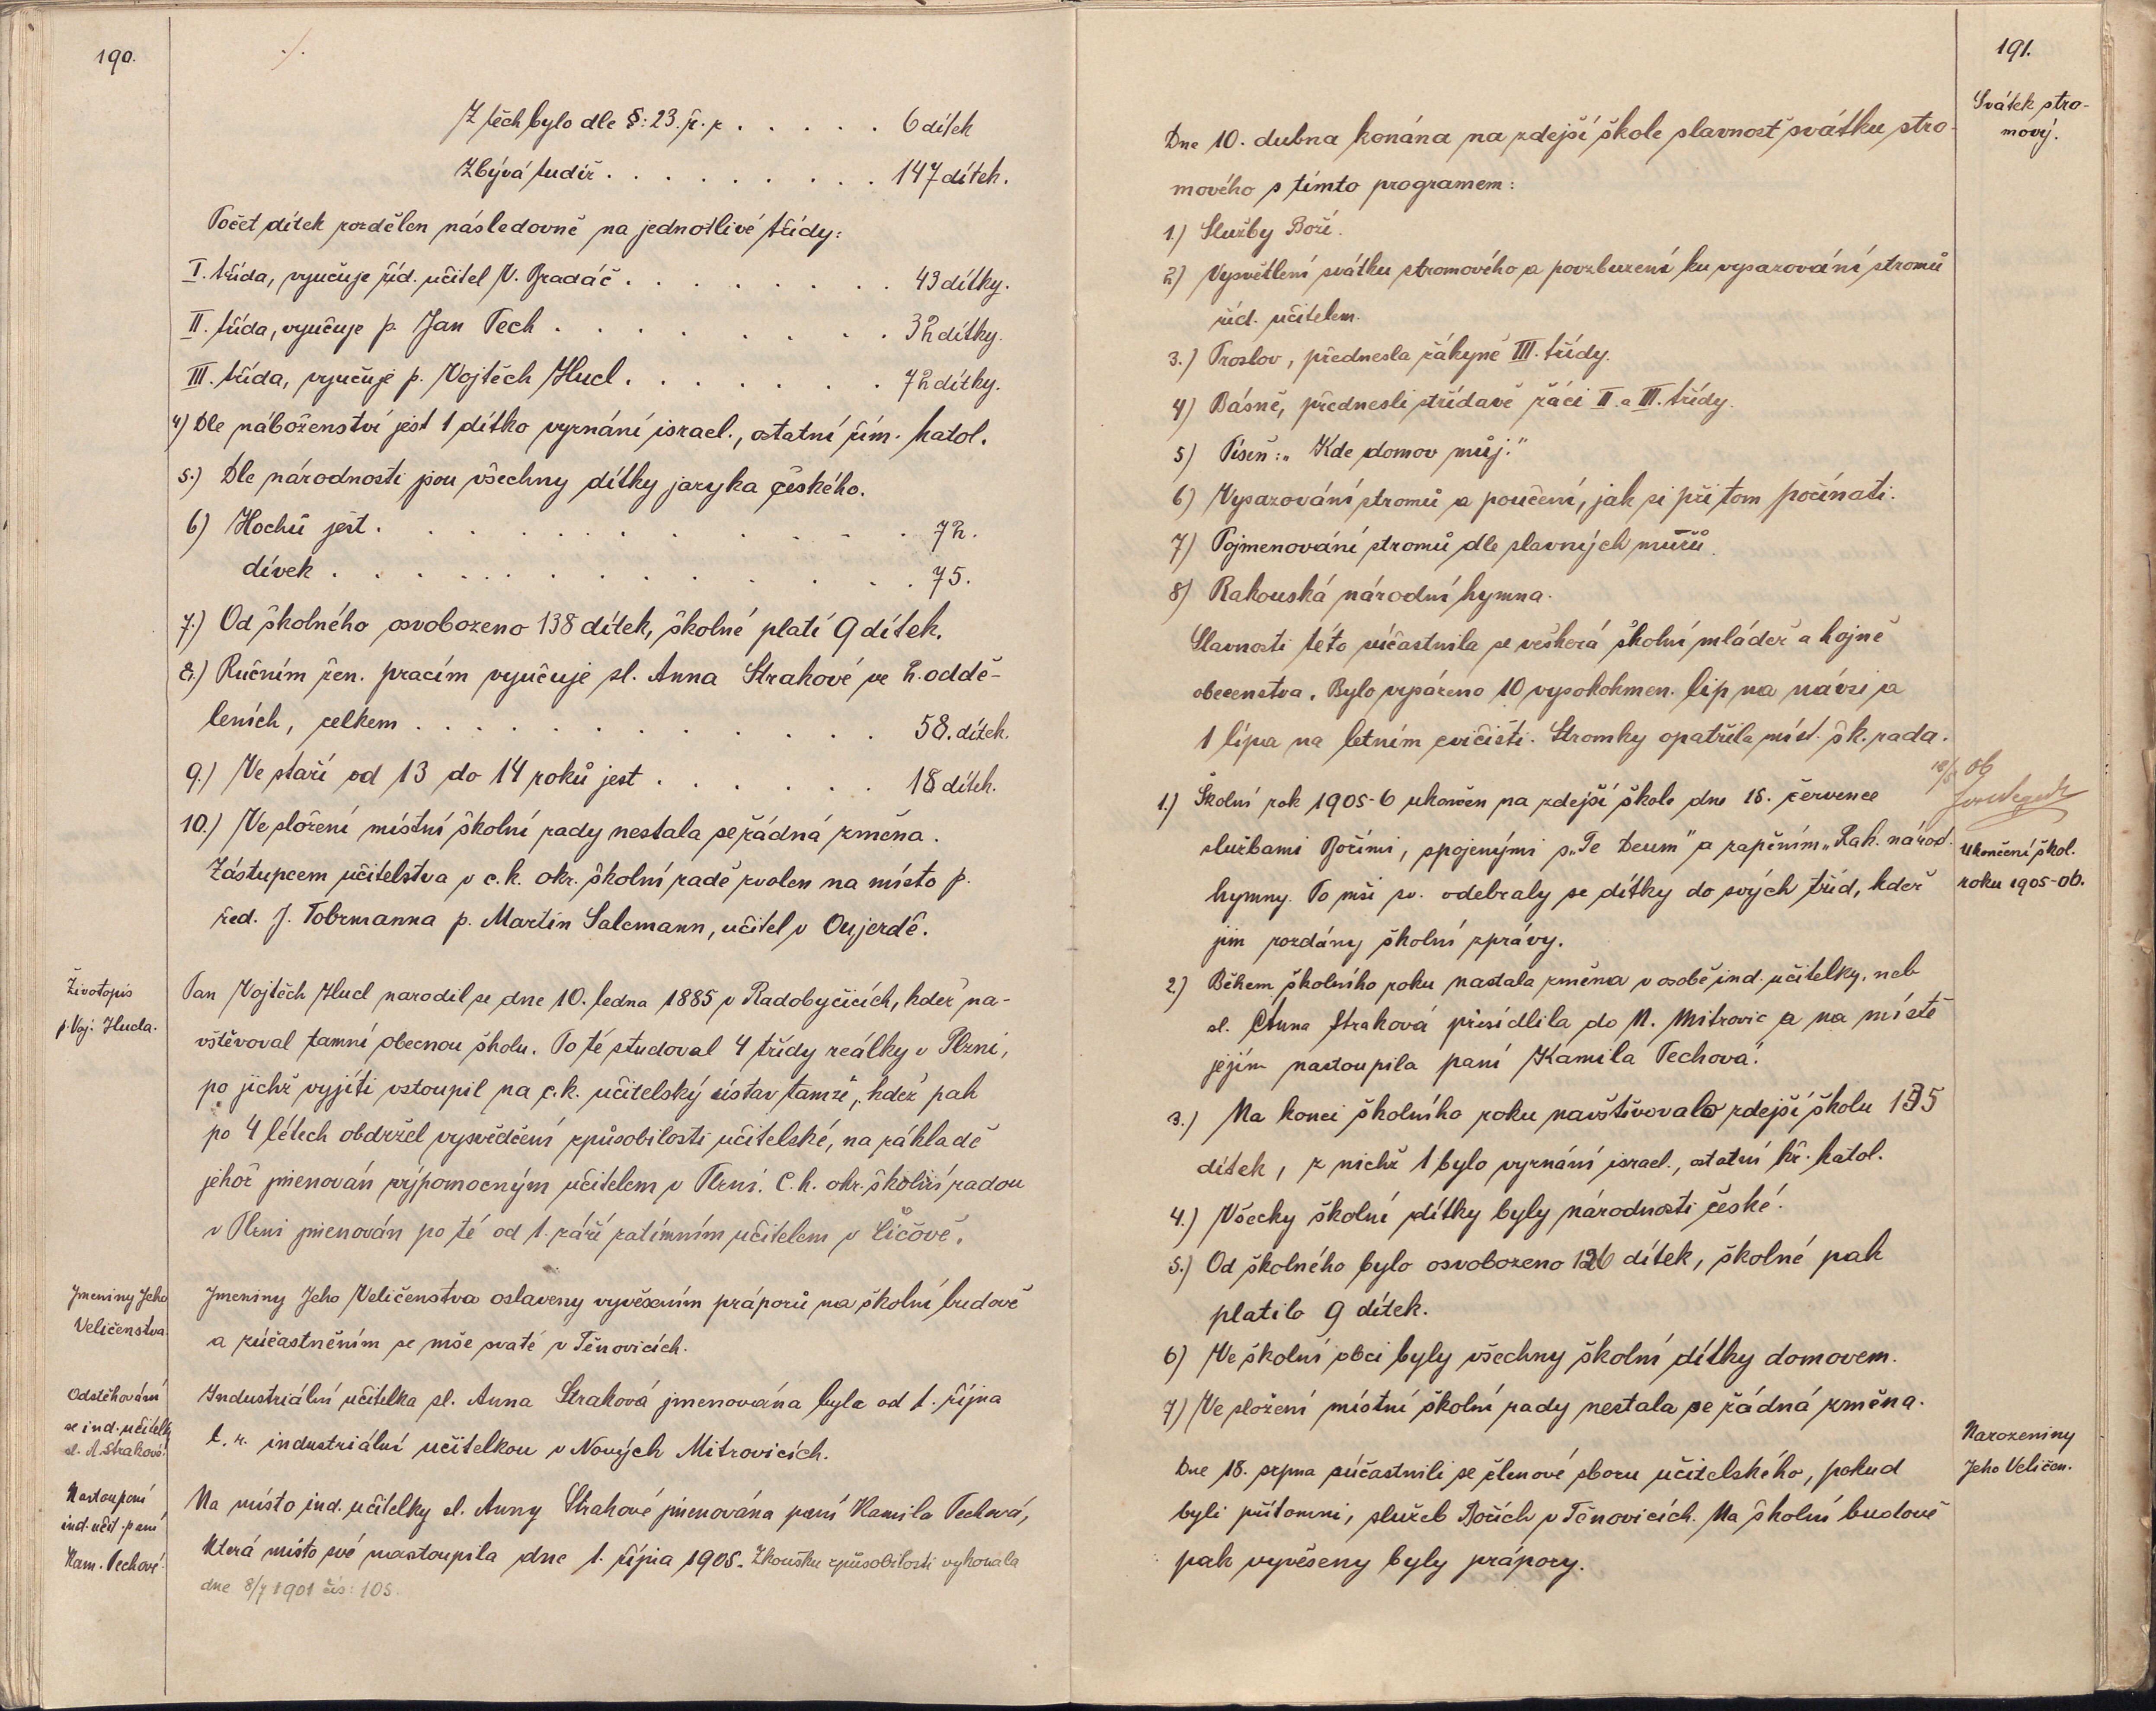 190.
Z těch bylo dle §: 23. ř. z . . . . . 6 dítek
Zbývá tudíž . . . . . . . . . . 147 dítek.
Počet dítek rozdělen následovně na jednotlivé třídy:
I. třída, vyučuje říd. učitel V. Bradáč . . . . . . . . 43 dítky.
II. třída, vyučuje p. Jan Tech . . . . . . . . 32 dítky.
III. třída, vyučuje p. Vojtěch Hucl . . . . . . . 72 dítky.
4) Dle náboženství jest 1 dítko vyznání israel., ostatní řím. katol.
5.) Dle národnosti jsou všechny dítky jazyka českého.
6) Hochů jest . . . . . . . . . . . 72.
dívek . . . . . . . . . . . . 75.
7.) Od školného osvobozeno 138 dítek, školné platí 9 dítek.
8.) Ručním žen. pracím vyučuje sl. Anna Strakové ve 2. oddě-
leních, celkem . . . . . . . . . . . 58. dítek.
9.) Ve stáří od 13 do 14 roků jest . . . . . . 18 dítek.
10.) Ve složení místní školní rady nestala se žádná změna.
Zástupcem učitelstva v c. k. okr. školní radě zvolen na místo p.
řed. J. Tobrmanna p. Martin Salcmann, učitel v Oujezdě.
Životopis
p. Voj. Hucla.
Pan Vojtěch Hucl narodil se dne 10. ledna 1885 v Radobyčicích, kdež na-
vštěvoval tamní obecnou školu. Po té studoval 4 třídy reálky v Plzni,
po jichž vyjití vstoupil na c. k. učitelský ústav tamže, kdež pak
po 4 létech obdržel vysvědčení způsobilosti učitelské, na základě
jehož jmenován výpomocným učitelem v Plzni. C. k. okr. školní radou
v Plzni jmenován po té od 1. září zatímním učitelem v Číčově.
Jmeniny Jeho
Veličenstva.
Jmeniny Jeho Veličenstva oslaveny vyvěšením práporů na školní budově
a zúčastněním se mše svaté v Těnovicích.
Odstěhování
se ind. učitelky
sl. A. Strakové.
Industriální učitelka sl. Anna Straková jmenována byla od 1. října
t. r. industriální učitelkou v Nových Mitrovicích.
Nastoupení
ind. učit. paní
Kam. Techové.
Na místo ind. učitelky sl. Anny Strakové jmenována paní Kamila Techová,
která místo své nastoupila dne 1. října 1905. Zkoušku způsobilosti vykonala
dne 8/7 1901 čís: 105.
191.
Svátek stro-
mový.
Dne 10. dubna konána na zdejší škole slavnost svátku stro-
mového s tímto programem:
1.) Služby Boží.
2) Vysvětlení svátku stromového a povzbuzení ku vysazování stromů
říd. učitelem.
3.) Proslov, přednesla žákyně III. třídy.
4) Básně, přednesli střídavě žáci II. a III. třídy.
5) Píseň: „Kde domov můj."
6) Vysazování stromů a poučení, jak si při tom počínati.
7) Pojmenování stromů dle slavných mužů.
8) Rakouská národní hymna.
Slavnosti této súčastnila se veškerá školní mládež a hojně
obecenstva. Bylo vysázeno 10 vysokokmen. lip na návsi a
1 lípa na letním cvičišti. Stromky opatřila míst. šk. rada.
06
1.) Školní rok 1905-6 ukončen na zdejší škole dne 15. července
službami Božími, spojenými s „Te Deum" a zapěním „Rak. národ.
hymny. Po mši sv. odebraly se dítky do svých tříd, kdež
jim rozdány školní zprávy.
Ukončení škol.
roku 1905-06.
2) Během školního roku nastala změna v osobě ind. učitelky, neb
sl. Anna Straková přesídlila do N. Mitrovic a na místě
jejím nastoupila paní Kamila Techová.
3.) Na konci školního roku navštěvovalo zdejší školu 135
dítek, z nichž 1 bylo vyznání israel., ostatní řk. katol.
4.) Všecky školní dítky byly národnosti české.
5.) Od školného bylo osvobozeno 126 dítek, školné pak
platilo 9 dítek.
6) Ve školní obci byly všechny školní dítky domovem.
7) Ve složení místní školní rady nestala se žádná změna.
Narozeniny
Jeho Veličen.
Dne 18. srpna súčastnili se členové sboru učitelského, pokud
byli přítomni, služeb Božích v Těnovicích. Na školní budově
pak vyvěšeny byly prápory.